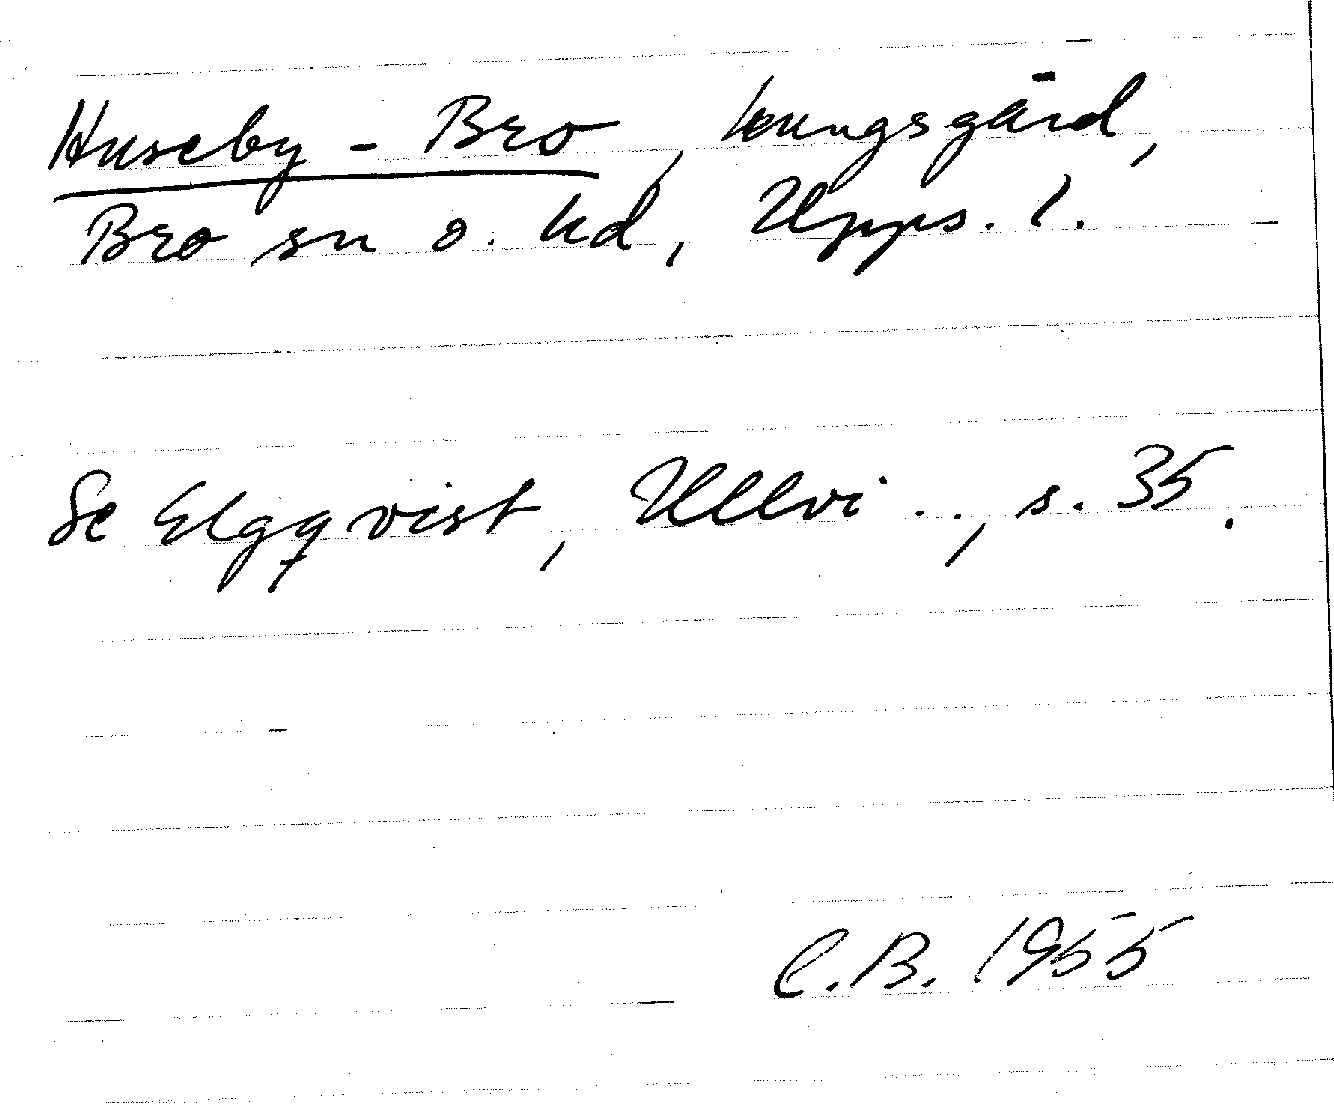 Huseby - Bro, kungsgård,
Bro sn o. hd, Upps. l.
Se Elgqvist, Ullvi .., s. 35.
C.B. 1955